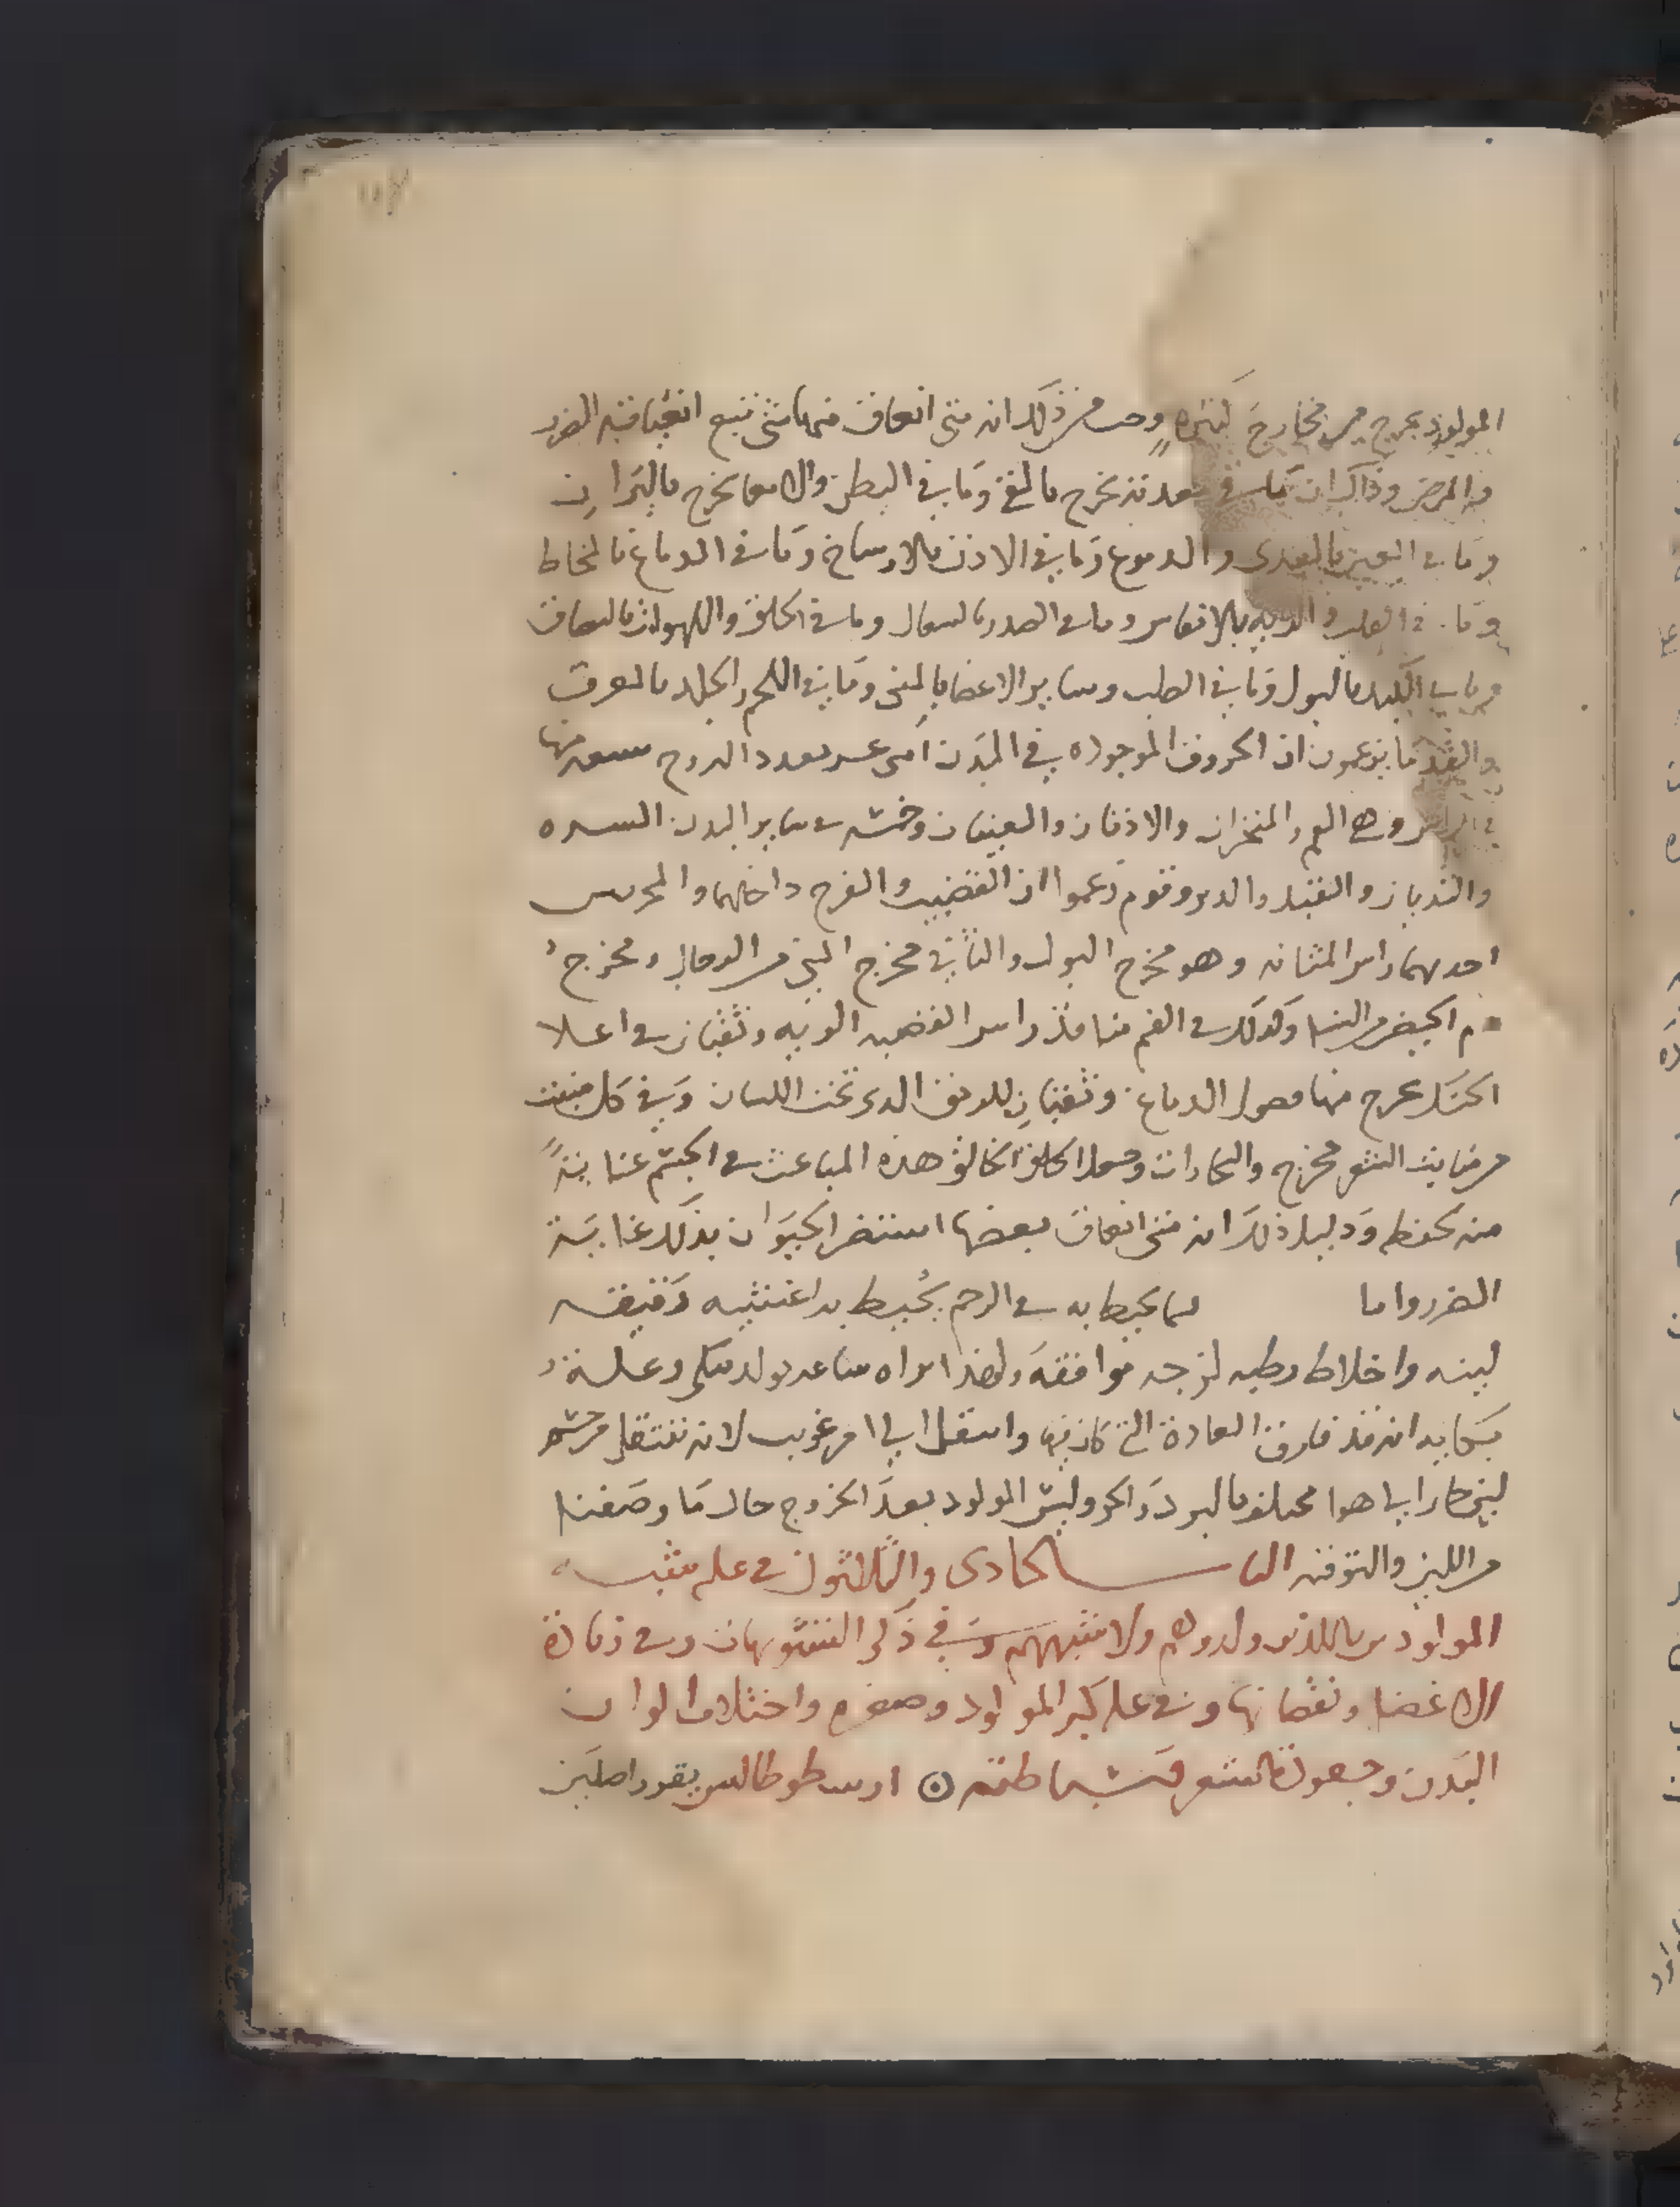 المولود يخرج من مخارج كثيره وحسب ذلك انه متى انعاق منها شى تبع انعياقه الضرر
والمرض وذاك ان ما فى معدته يخرج بالقى وما فى البطن والامعا يخرج بالبراز
وما فى العين بالقدى والدموع وما فى الاذن بالاوساخ وما فى الدماغ بالمخاط
وما فى القلب والريه بالانفاس وما فى الصدر بالسعال وما فى الحلق واللهوات بالبصاق
وما فى الكبد بالبول وما فى الصلب وساير الاعضا بالمنى وما فى اللحم والجلد بالعرق
والقدما يزعمون ان الخروق الموجوده فى البدن اثنى عشر بعدد البروج سبعه منها
فى الراس وهى الفم والمنخران والاذنان والعينان وخمسه فى ساير البدن السره
والثديان والقبل والدبر وقوم زعموا ان القضيب والفرج داخلهما
احدهما راس المثانه وهو مخرج البول والثانى مخرج المنى من الرجال ومخرج
دم الحيض من النسا وكذلك فى الفم منافذ راس القصبه الريه وثقبان فى اعلا
الحنك يخرج منها فضول الدماغ وثقبان للريق الذى تحت اللسان وفى كل منبت
من منابت الشعر مخرج والبخارات وجعل الخالق هذه المباعث فى الجسم عنايةً
منه بحفظه ودليل ذلك انه متى انعاق بعضها استضر الحيوان بذلك غاية
الضرر واما فما يحيط به فى الرحم يحيط به اغشيه رقيقه
لينه واخلاط رطبه لزجه موافقه ولهذا تراه ساعه يولد يبكى وعلة
بكايه انه قد فارق العادة التى كان فيها وانتقل الى امر غريب لانه ينتقل من شى
لين حار الى هوا مختلف بالبرد والحر ولبس المولود بعد الخروج حال ما وصفنا
من اللين والترفه الباب الحادى والثلاثون فى علم شبه
المولودين باللذين ولدوهم ولا شبههم وفى ذكر التشويهات وفى زيادة
الاعضا ونقصانها وفى علة كبر المولود وصغره واختلاف الوان
البدن وجعودة الشعر وسباطته ارسطوطالس يقرر اصلين